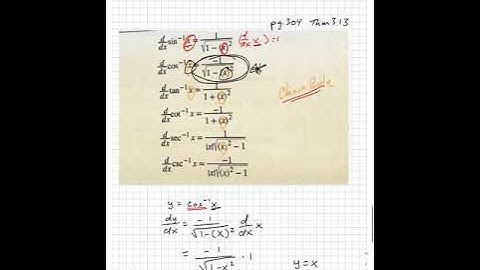 pg. 304 Thm 3.13
d/dx sin⁻¹ x = 1/√(1 − (x)²) (d/dx x) = 1
d/dx cos⁻¹ x = −1/√(1 − (x)²)
d/dx tan⁻¹ x = 1/(1 + (x)²)
Chain Rule
d/dx cot⁻¹ x = −1/(1 + (x)²)
d/dx sec⁻¹ x = 1/(|x|√((x)² − 1))
d/dx csc⁻¹ x = −1/(|x|√((x)² − 1))
y = cos⁻¹ x
dy/dx = −1/√(1 − (x)²) d/dx x
= −1/√(1 − x²) · 1
y = x